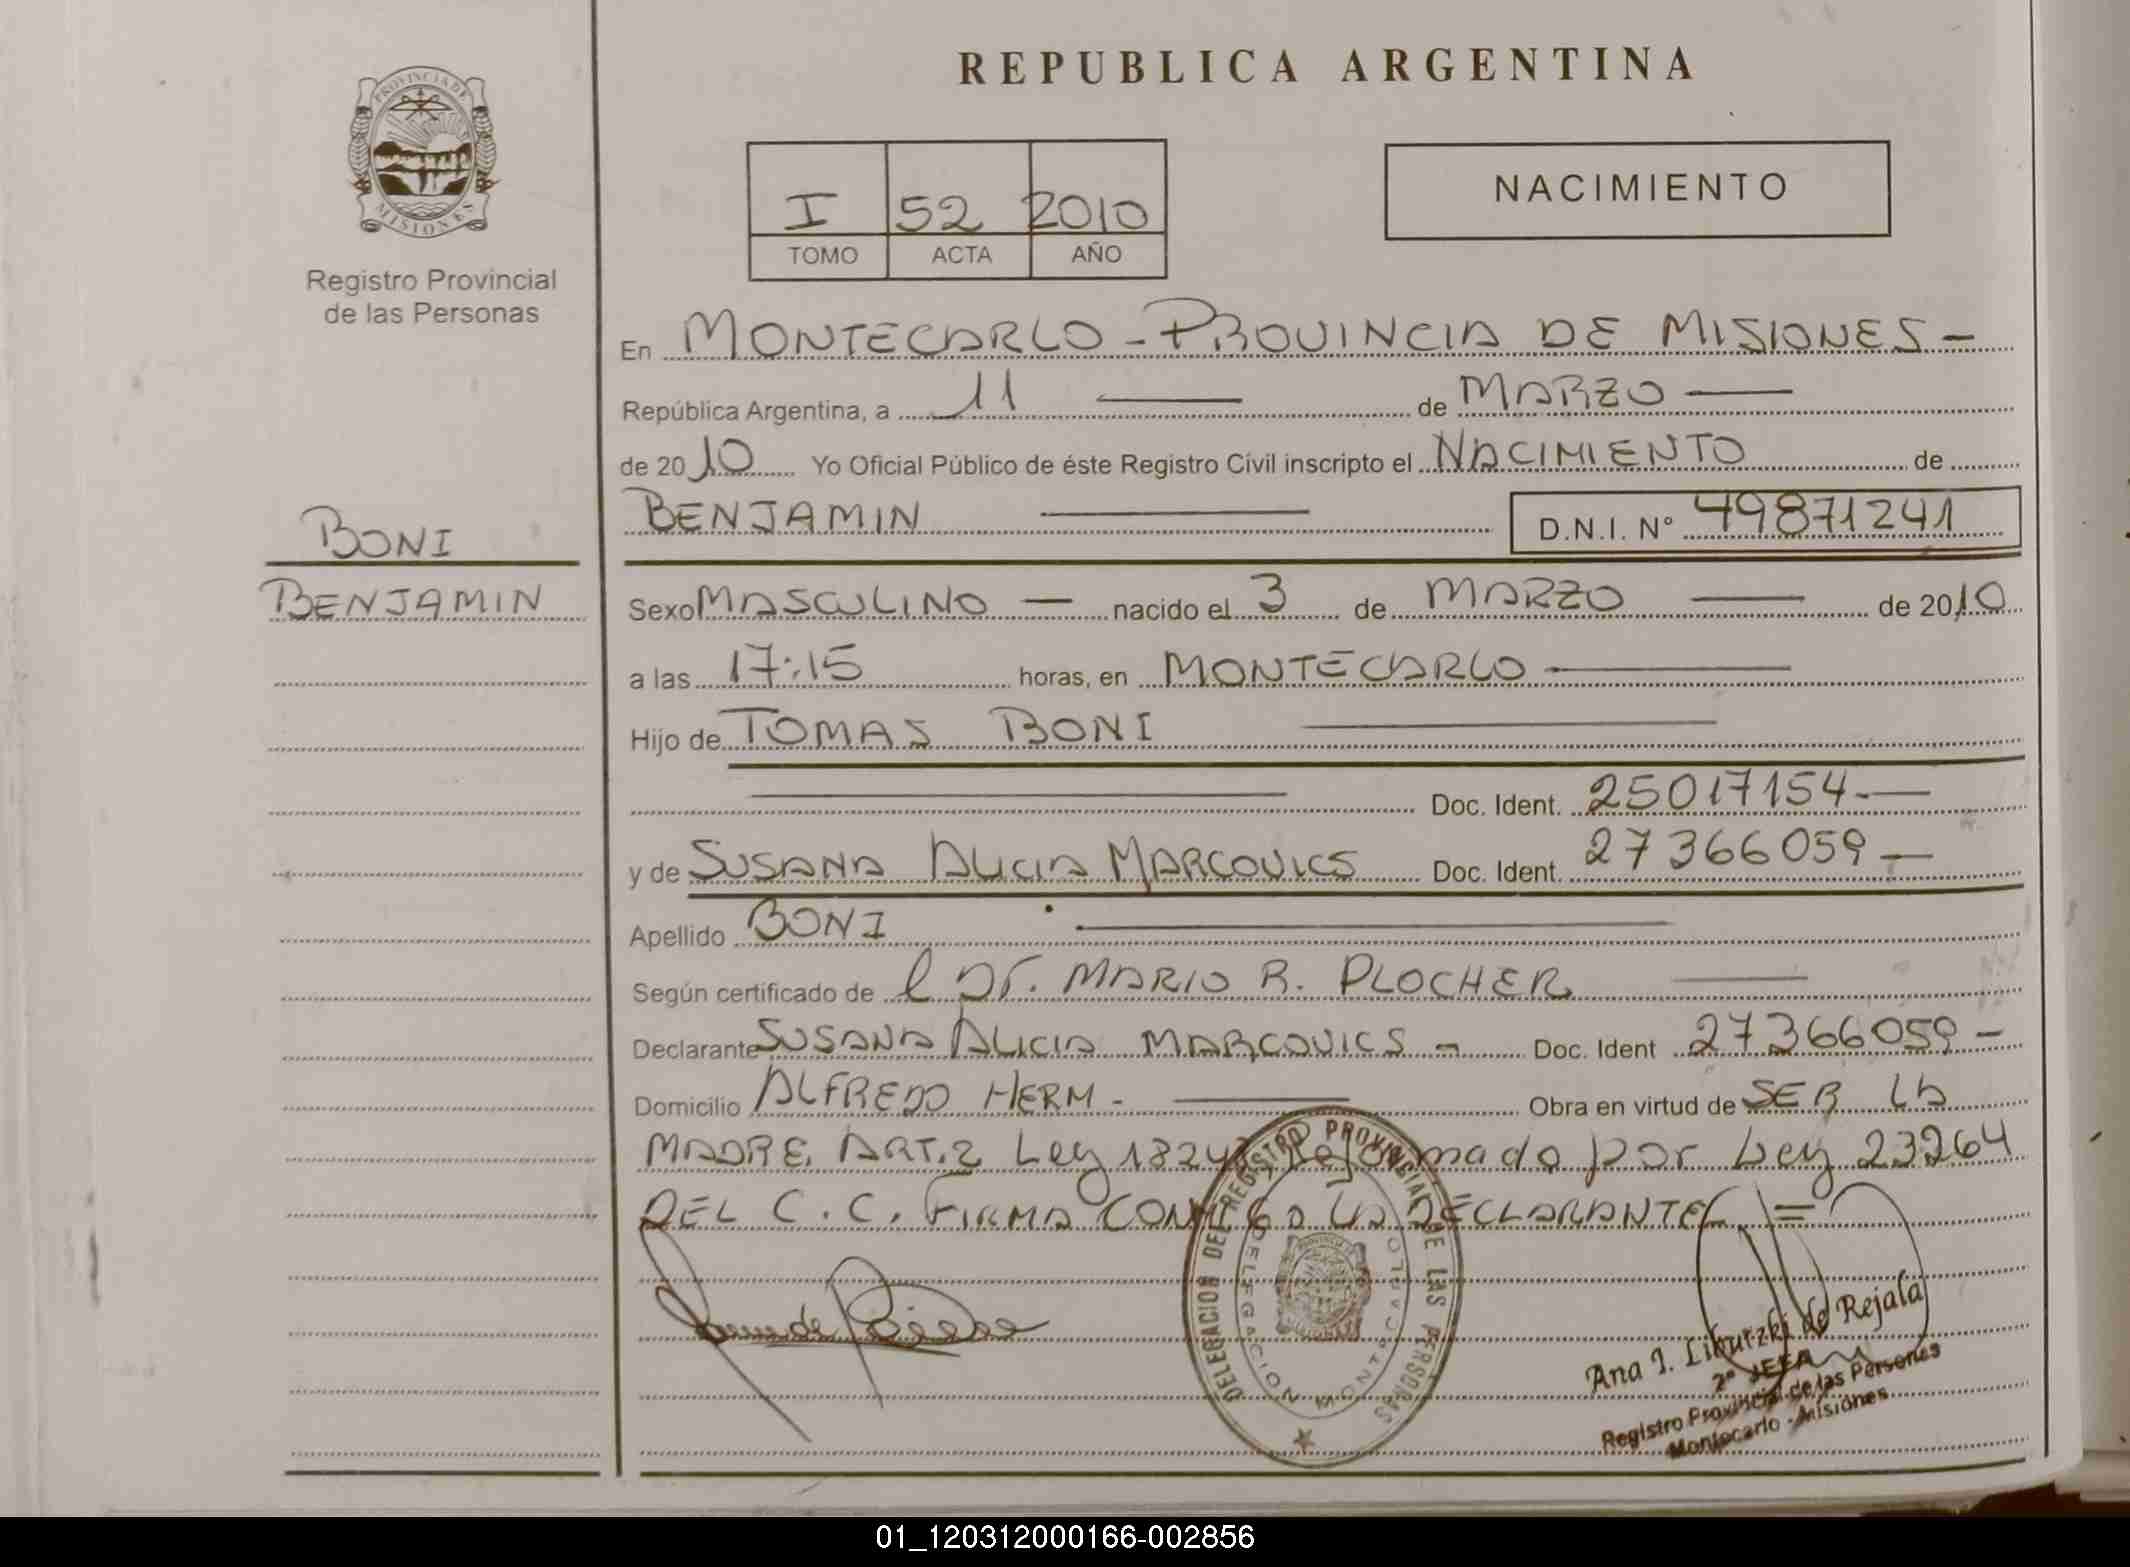 PROVINCIA DE
MISIONES
Registro Provincial
de las Personas
BONI
BENJAMIN
REPUBLICA ARGENTINA
I 52 2010
TOMO ACTA AÑO
NACIMIENTO
En MONTECARLO - PROVINCIA DE MISIONES -
República Argentina, a 11 de MARZO
de 2010 Yo Oficial Público de éste Registro Civil inscripto el NACIMIENTO de
BENJAMIN D.N.I. Nº 49871241
Sexo MASCULINO — nacido el 3 de MARZO de 2010
a las 17:15 horas, en MONTECARLO
Hijo de TOMAS BONI
Doc. Ident. 25017154.—
y de SUSANA ALICIA MARCOVICS Doc. Ident. 27366059 —
Apellido BONI
Según certificado de l Dr. MARIO R. PLOCHER
Declarante SUSANA ALICIA MARCOVICS - Doc. Ident 27366059 -
Domicilio ALFREDO HERM - Obra en virtud de SER LA
MADRE. ART. 2 Ley 18248 Reformado por Ley 23264
DEL C. C. FIRMA CONMIGO LA DECLARANTE =
DELEGACION DEL REGISTRO PROVINCIAL DE LAS PERSONAS
DELEGACION MONTECARLO
Ana I. Liburzki de Rejala
2º JEFA
Registro Provincial de las Personas
Montecarlo - Misiones
01_120312000166-002856